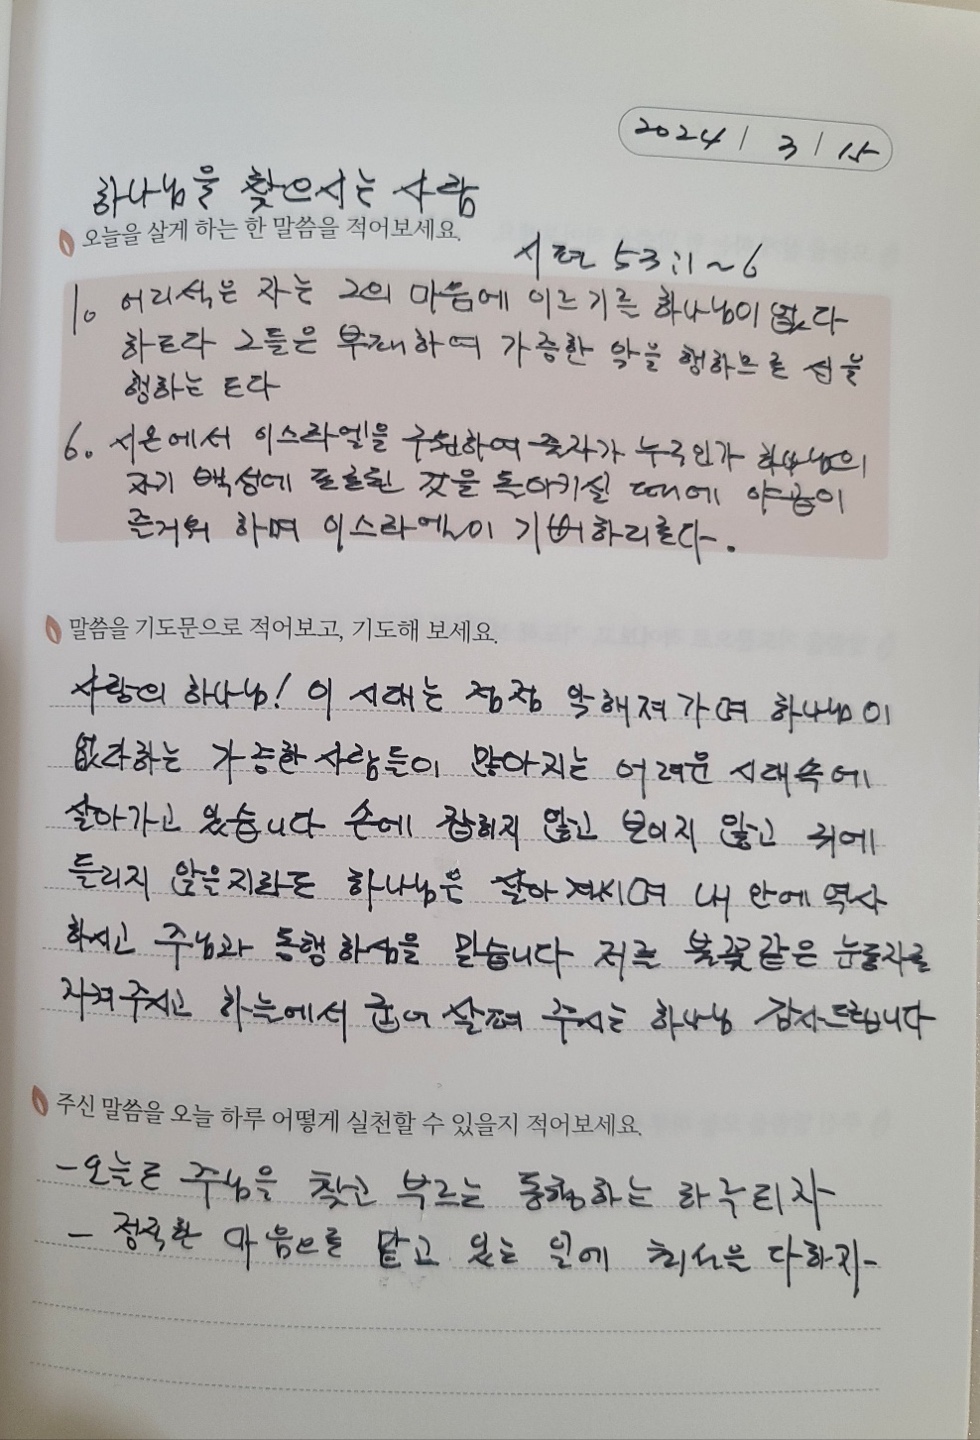 2024 / 3 / 15
하나님을 찾으시는 사람
오늘을 살게 하는 한 말씀을 적어보세요.
시편 53:1~6
1. 어리석은 자는 그의 마음에 이르기를 하나님이 없다
하도다 그들은 부패하며 가증한 악을 행하므로 선을
행하는 도다
6. 시온에서 이스라엘을 구원하여 줄자가 누구인가 하나님의
자기 백성에 포로된 것을 돌아키실 때에 야곱이
즐거워 하며 이스라엘이 기뻐하리로다.
말씀을 기도문으로 적어보고, 기도해 보세요.
사랑의 하나님! 이 시대는 점점 악해져가며 하나님이
없다하는 가증한 사람들이 많아지는 어려운 시대속에
살아가고 있습니다 손에 잡히지 않고 보이지 않고 귀에
들리지 않을지라도 하나님은 살아 계시며 내 안에 역사
하시고 주님과 동행하심을 믿습니다 저를 불꽃같은 눈동자로
지켜주시고 하늘에서 굽어 살펴 주시는 하나님 감사드립니다
주신 말씀을 오늘 하루 어떻게 실천할 수 있을지 적어보세요.
- 오늘도 주님을 찾고 부르는 동행하는 하루되자
- 정직한 마음으로 맡고 있는 일에 최선을 다하자-